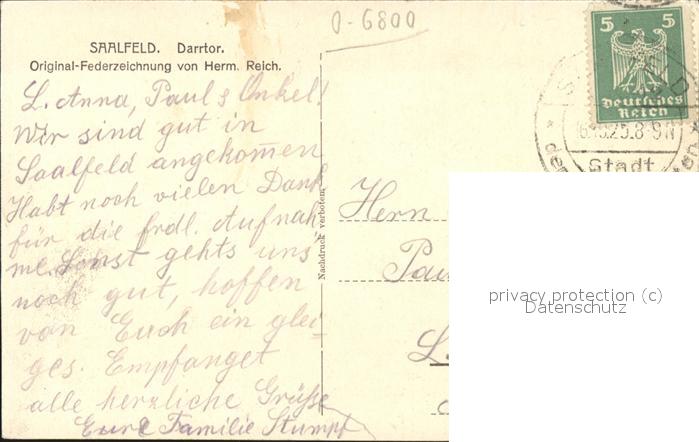 SAALFELD. Darrtor.
Original-Federzeichnung von Herm. Reich.
0-6800
L. Anna, Paul & Onkel!
Wir sind gut in
Saalfeld angekommen
Habt noch vielen Dank
für die frdl. Aufnah
me. Sonst gehts uns
noch gut, hoffen
von Euch ein glei-
ges. Empfanget
alle herzliche Grüße
Eure Familie Stumpf
Nachdruck verboten.
5 5
Deutsches
Reich
25.8-9N
Stadt
Herrn
Pau
L.
privacy protection (c)
Datenschutz